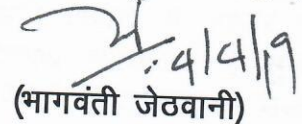 4/4/19
(भागवंती जेठवानी)